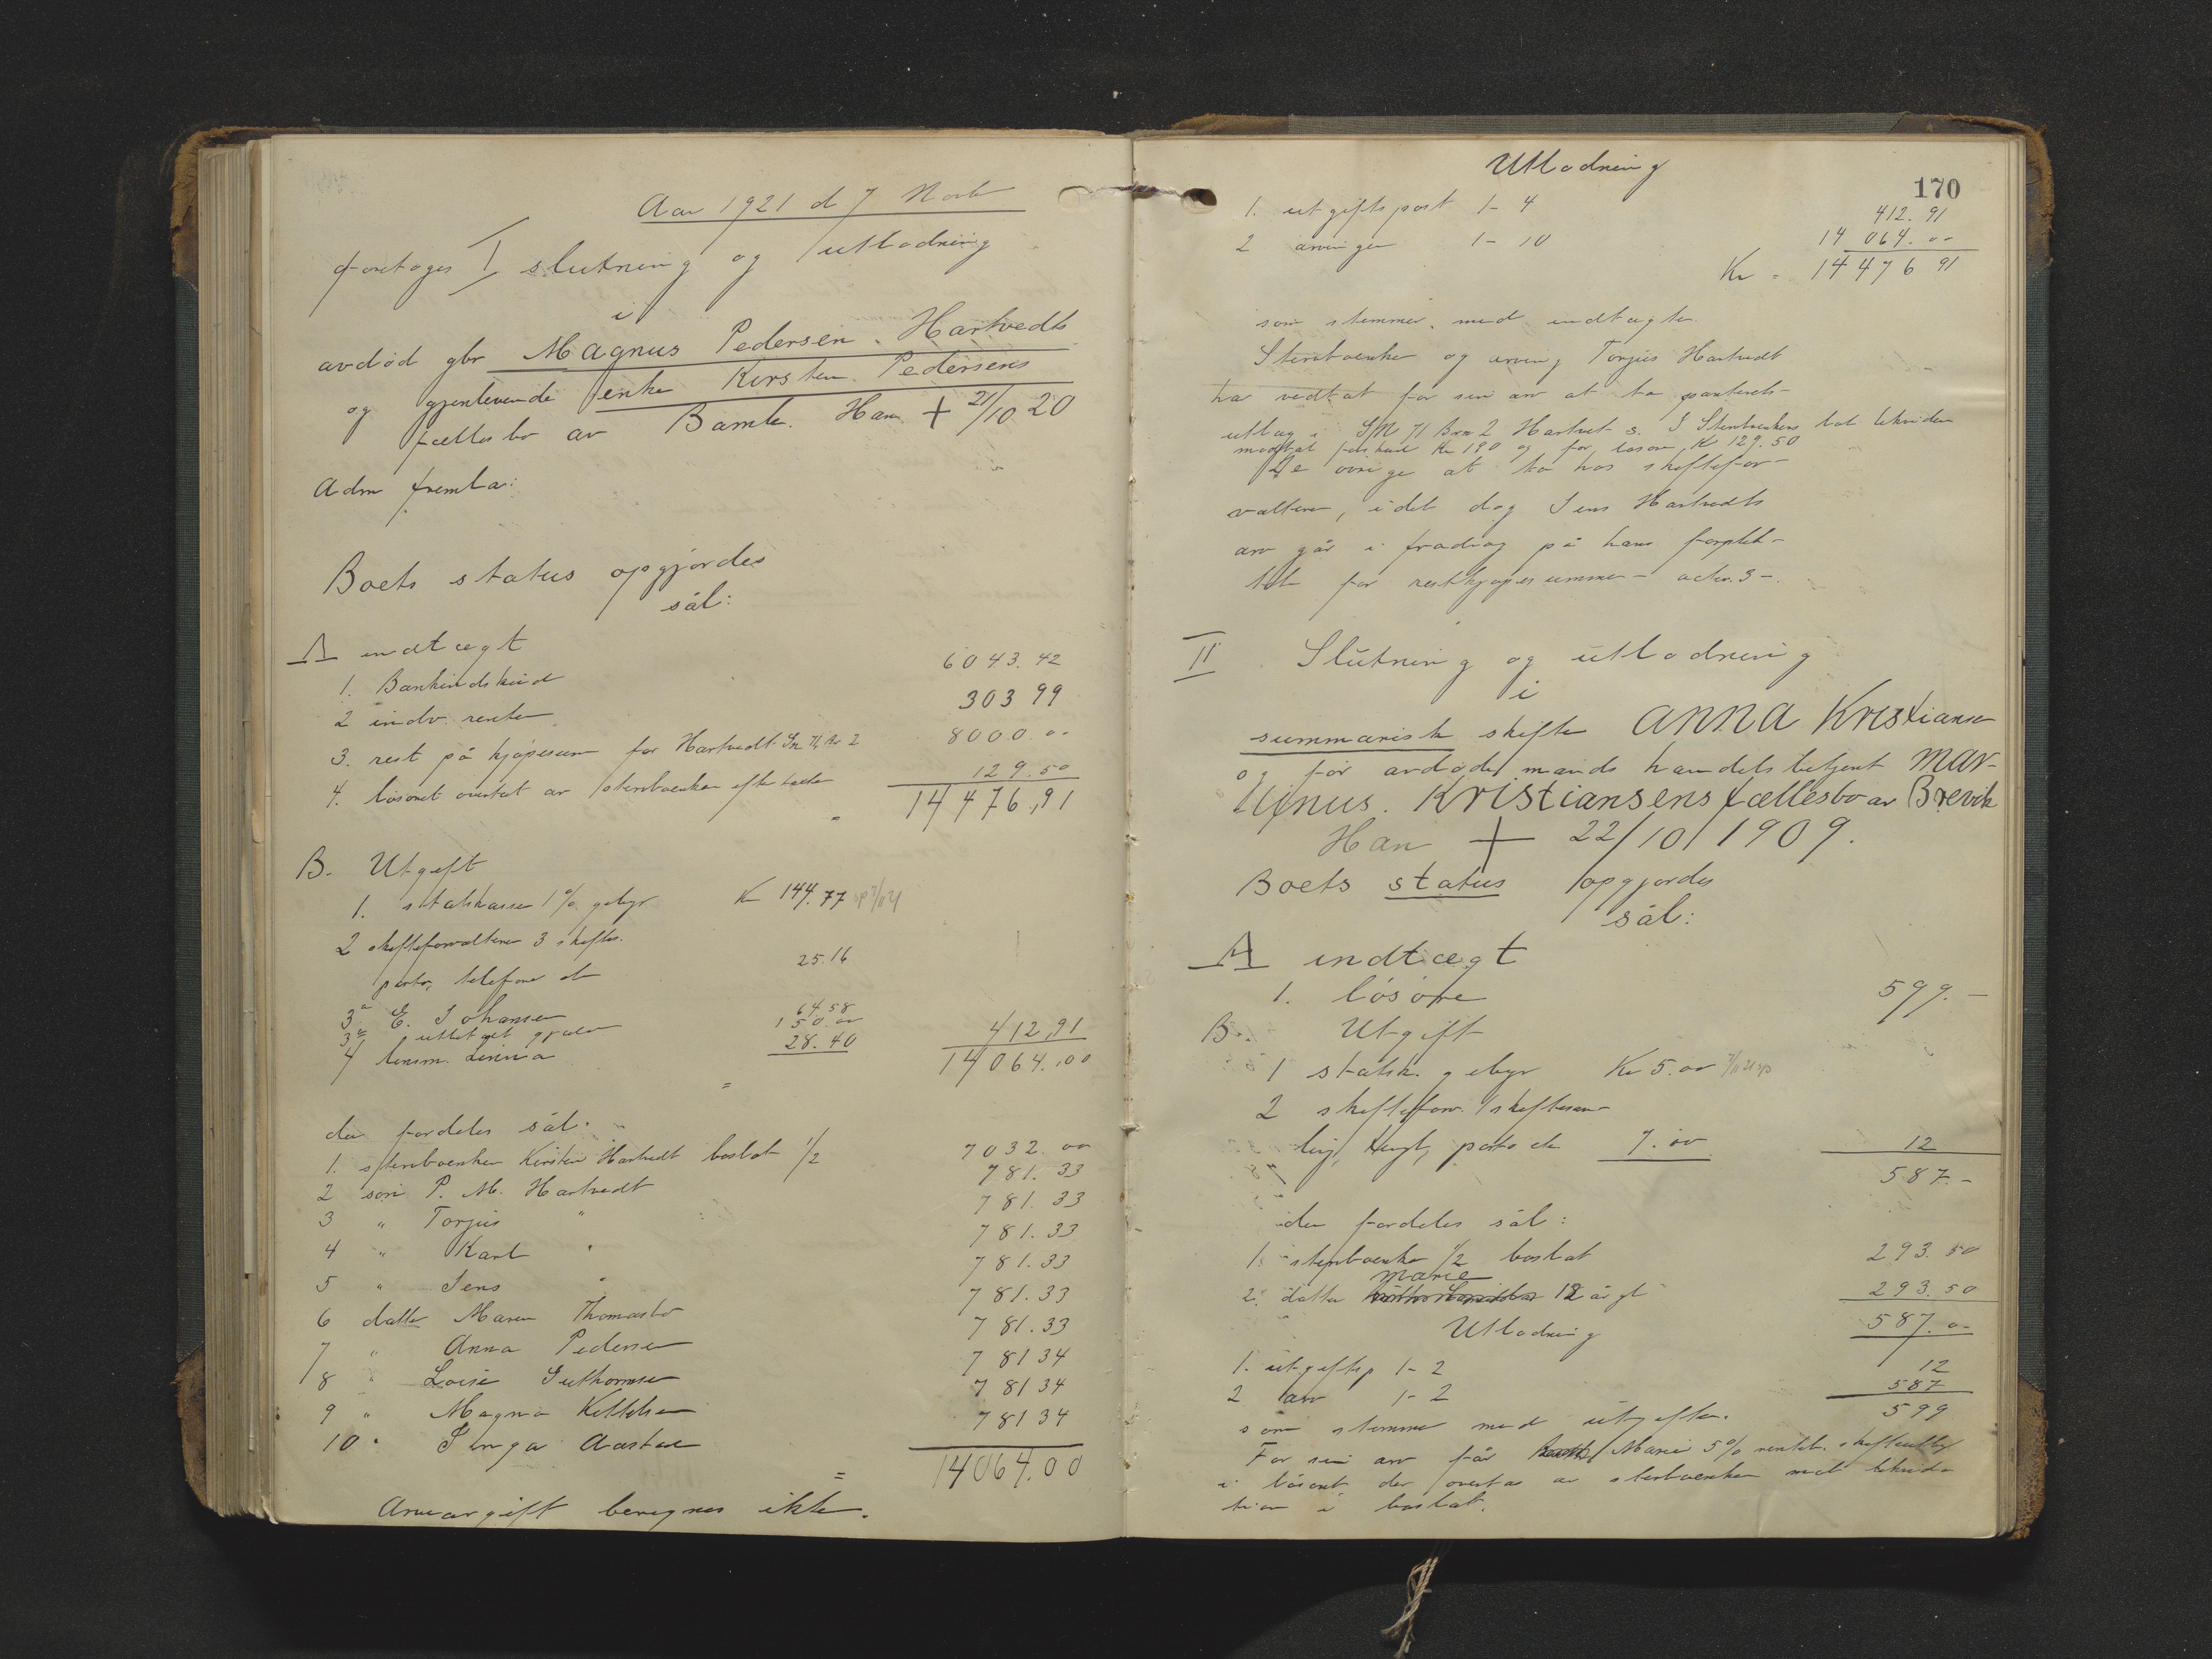 Aar 1921 d 7 Novb
foretoges I slutning og utlodning
i
avdöd gbr Magnus Pedersen Hartvedts
og gjenlevende enke Kirsten Pedersens
fællesbo av Bamle. Han + 21/10 20
Adm fremla:
Boets status opgjordes
sål:
A indtægt
1. Bankindskud 6043.42
2 indv. renter 303 99
3. rest på kjøpesum for Hartvedt Gn 71 Br 2 8000.00
4. lösöret overtat av stervboenken efter takst 129.50
= 14476,91
B. Utgift
1. statskassen 1% gebyr Kr 144.77
2 skifteforvalteren 3 skiftes.
porto, telefon etc 25.16
3a E. Johansen 64.58
3b utlet gjæld 150.00
4 lensm. Linna 28.40 412,91
= 14064.00
der fordeles sål:
1. stervboenken Kirsten Hartvedt boslot 1/2 7032.00
2 sön P. M. Hartvedt 781.33
3 " Torjus " 781.33
4 " Karl " 781.33
5 " Jens " 781.33
6 datter Maren Thomasbo 781.33
7 " Anna Pedersen 781.33
8 " Lovise Guthormsen 781 34
9 " Magna Kittilsen 781 34
10 " Inga Aastad 781 34
= 14064.00
Arveavgift beregnes ikke.
170
Utlodning
1. utgiftspost 1-4 412.91
2 arvinger 1-10 14 064.00
Kr = 14476 91
som stemmer med indtægten
Stervboenken og arving Torjus Hartvedt
har vedtat for sin arv at ta panterets-
utlæg i G/N 71 Brn 2 Hartvet s. I Stervboenkens lot likvideres
mottat forskud Kr 190 og for lösöre Kr 129.50
De övrige at ta hos skiftefor-
valteren, idet dog Jens Hartvedts
arv går i fradrag på hans forplik-
telse for restkjøpesummen - actnr. 3 -.
II Slutning og utlodning
i
summarisk skifte Anna Kristiansen
og for avdöde mands handelsbetjent Mar-
tinus Kristiansens fællesbo av Brevik
Han + 22/10 1909.
Boets status opgjordes
sål:
A indtægt
1. lösöre 599.-
B. Utgift
1 statsk. gebyr Kr 5.00
2 skifteforv. 1 skiftesam-
ling, porto etc 7.00 12
587.-
der fordeles sål:
1. stervboenke 1/2 boslot 293.50
Marie
2. datter 12 år gl 293.50
587.00
Utlodning
1. utgiftsp 1-2 12
2 arv 1-2 587
599
som stemmer med utgiften.
For sin arv får Marie 5% renteb. skifteutlæg
i lösöret der overtas av stervboenken mot likvida-
tion i boslot.